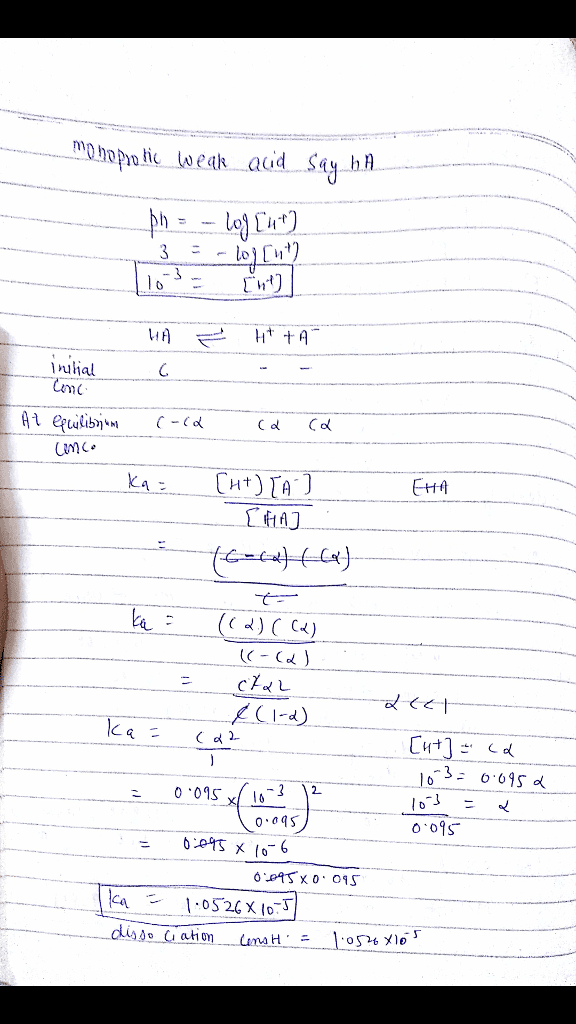 monoprotic weak acid say hA
ph = - log [H+]
3 = - log [H+]
10-3 = [H+]
HA ⇌ H+ + A-
initial C - -
conc.
At equilibrium C-Cα Cα Cα
conc.
Ka = [H+] [A-] [HA
[HA]
= (C-Cα) (Cα)
C
Ka = (Cα) (Cα)
(C-Cα)
= C2α2 α<<1
C(1-α)
Ka = Cα2 [H+] = Cα
1 10-3 = 0.095 α
= 0.095 x (10-3)2 10-3 = α
0.095 0.095
= 0.095 x 10-6
0.095 x 0.095
Ka = 1.0526 x 10-5
dissociation const. = 1.0526 x 10-5